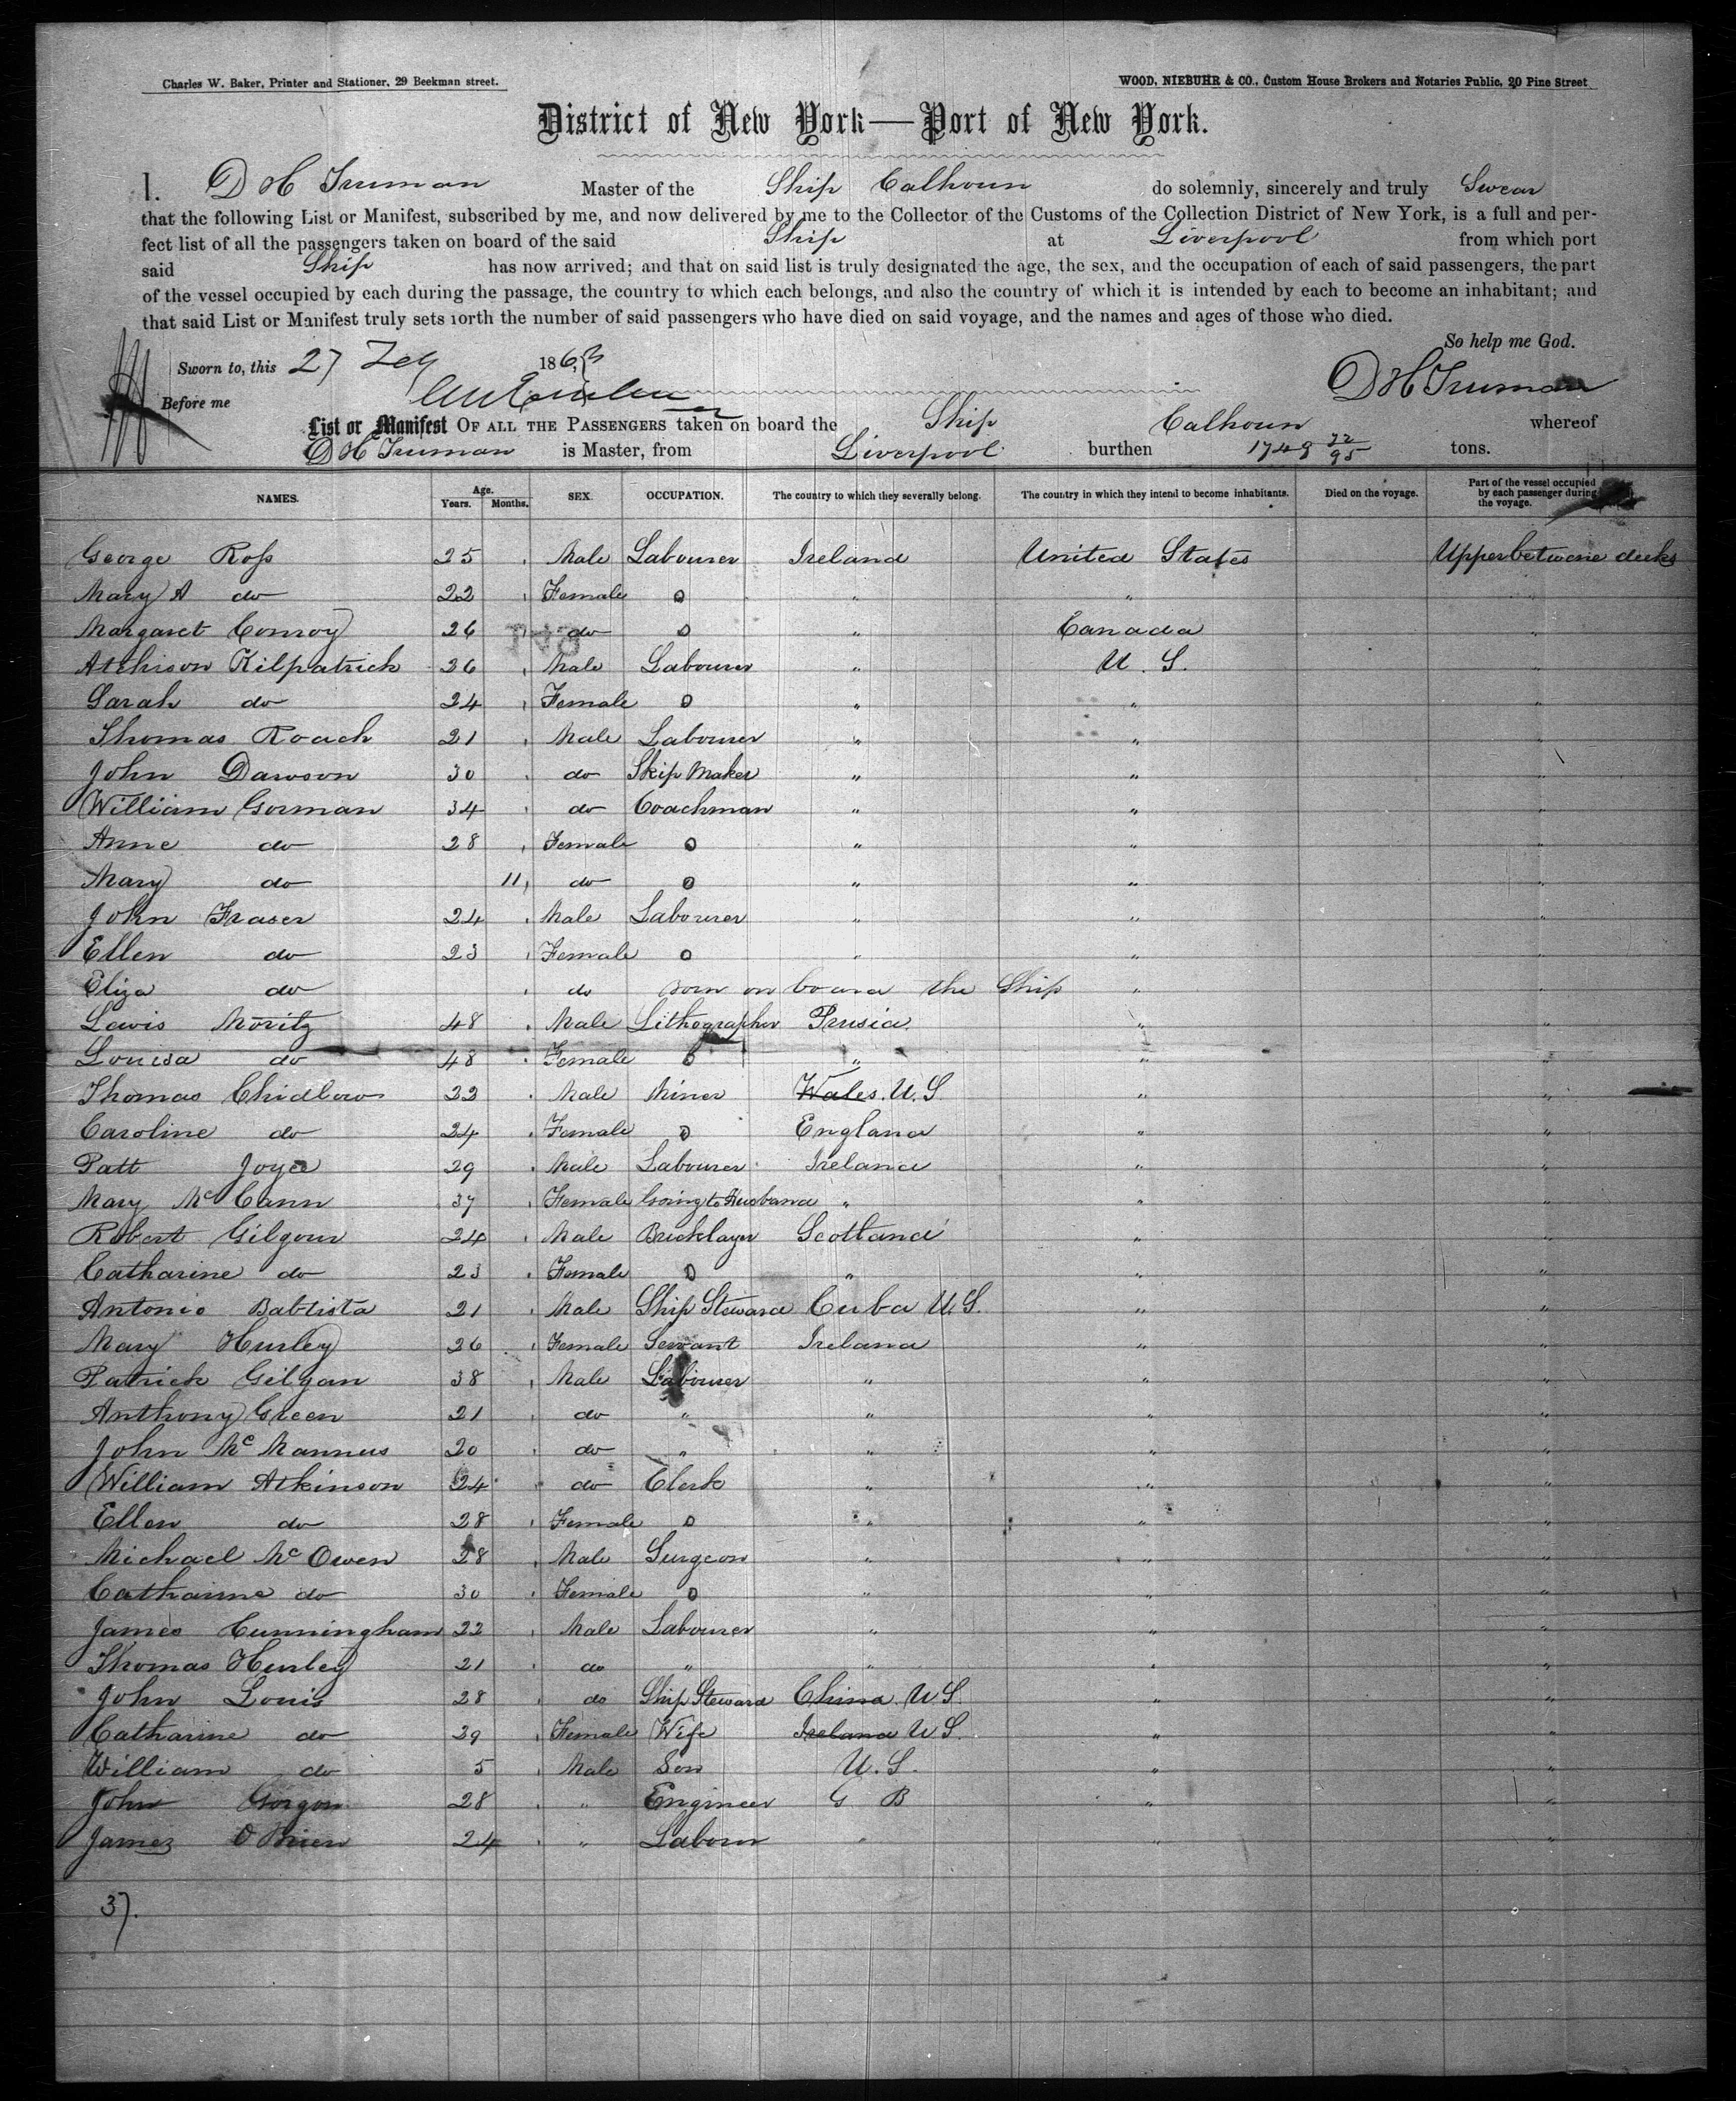 Charles W. Baker, Printer and Stationer, 29 Beekman street. WOOD, NIEBUHR & CO., Custom House Brokers and Notaries Public, 20 Pine Street
District of New York—Port of New York.
I. D H Truman Master of the Ship Calhoun do solemnly, sincerely and truly Swear
that the following List or Manifest, subscribed by me, and now delivered by me to the Collector of the Customs of the Collection District of New York, is a full and per-
fect list of all the passengers taken on board of the said Ship at Liverpool from which port
said Ship has now arrived; and that on said list is truly designated the age, the sex, and the occupation of each of said passengers, the part
of the vessel occupied by each during the passage, the country to which each belongs, and also the country of which it is intended by each to become an inhabitant; and
that said List or Manifest truly sets forth the number of said passengers who have died on said voyage, and the names and ages of those who died.
So help me God.
Sworn to, this 27 186 D H Truman
Before me
List or Manifest OF ALL THE PASSENGERS taken on board the Ship Calhoun whereof
D H Truman is Master, from Liverpool burthen 1749 32/95 tons.
NAMES. Age. Years. Months. SEX. OCCUPATION. The country to which they severally belong. The country in which they intend to become inhabitants. Died on the voyage. Part of the vessel occupied by each passenger during the voyage.
George Ross 25 Male Labourer Ireland United States Upper betwene decks
Mary A do 22 Female o " " "
Margaret Conroy 26 do o " Canada "
Atchison Kilpatrick 26 Male Labourer " U. S. "
Sarah do 24 Female o " " "
Thomas Roach 21 Male Labourer " " "
John Dawson 30 do Skip Maker " " "
William Gorman 34 do Coachman " " "
Anne do 28 Female o " " "
Mary do 11 do o " " "
John Fraser 24 Male Labourer " " "
Ellen do 23 Female o " " "
Eliza do do Born on board the Ship " "
Lewis Moritz 48 Male Lithographer Prusia " "
Louisa do 48 Female o " " "
Thomas Chidlow 22 Male Miner Wales. U. S. " "
Caroline do 24 Female o England " "
Patt Joyce 29 Male Labourer Ireland " "
Mary McCann 37 Female Going to Husband " " "
Robert Gilgour 24 Male Bricklayer Scotland " "
Catharine do 23 Female o " " "
Antonio Babtista 21 Male Ship Steward Cuba U. S. " "
Mary Hurley 26 Female Servant Ireland " "
Patrick Gilgan 38 Male Labourer " " "
Anthony Green 21 do " " " "
John McMannus 20 do " " " "
William Atkinson 24 do Clerk " " "
Ellen do 28 Female o " " "
Michael McOwen 28 Male Surgeon " " "
Catharine do 30 Female o " " "
James Cunningham 22 Male Labourer " " "
Thomas Hurley 21 do " " " "
John Louis 28 do Ship Steward China. U S. " "
Catharine do 29 Female Wife Ireland U S. " "
William do 5 Male Son U. S. " "
John 28 " Engineer G B " "
James O Brien 24 " Labour " " "
37.